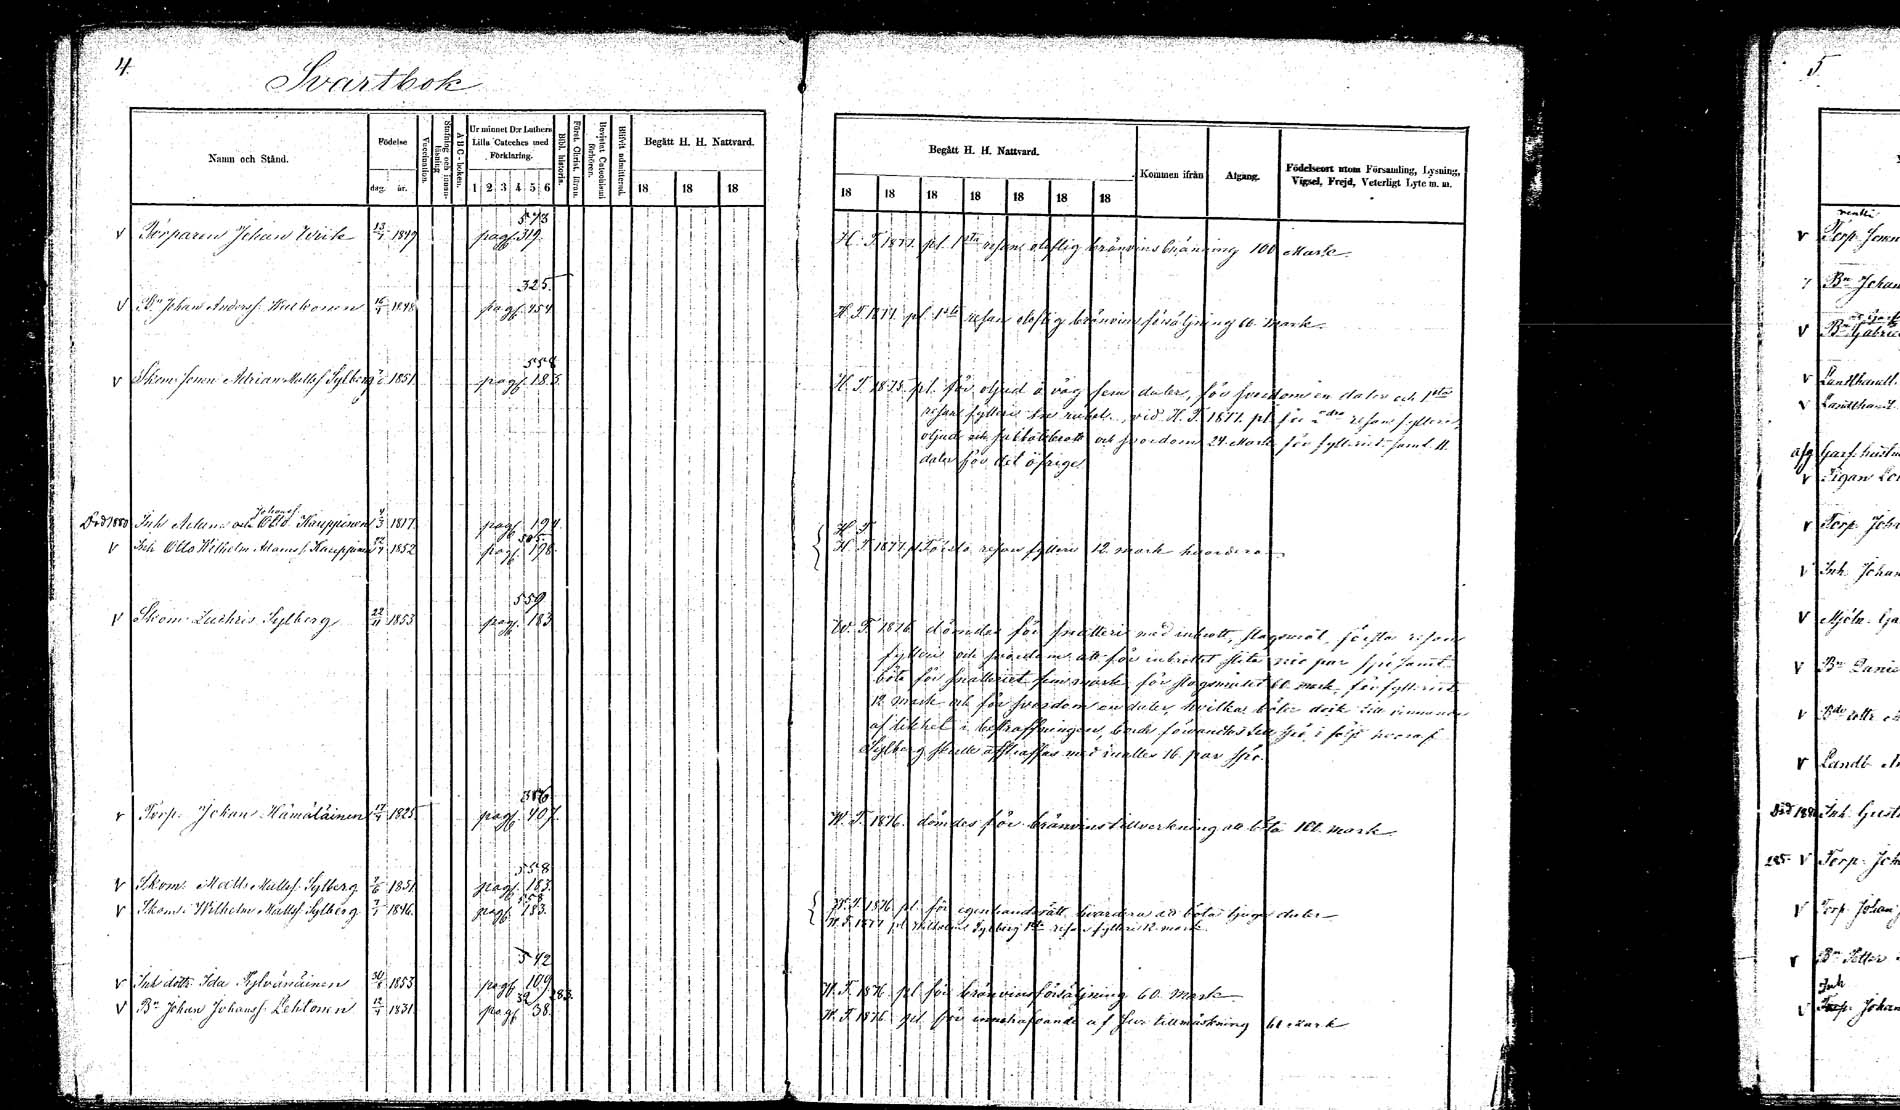 4.
Svartbok
Namn och Stånd.
Födelse
dag. år.
Vaccination.
Stafning och innanläsning
A B C - boken.
Ur minnet D:r Luthers Lilla Cateches med Förklaring.
1 2 3 4 5 6
Bibl. historia.
Förest. Christ. läran.
Bevistat Catechismi förhören.
Blifvit admitterad.
Begått H. H. Nattvard.
18 18 18
Begått H. H. Nattvard.
18 18 18 18 18 18 18
Kommen ifrån
Afgang.
Födelseort utom Församling, Lysning, Vigsel, Frejd, Veterligt Lyte m. m.
573
v Torparen Johan 13/1 1849 pag. 319.
H. T. 1877. pl. 1sta resans oloflig bränvinsbränning 100 Mark.
325.
v Bn Johan Anderss. 16/1 1848 pag. 454
H. T. 1877. pl. 1sta resan oloflig bränvins försäljning 60. mark.
558
v Skom. Sonen Adrian Mattsf. Sylberg 1851 pag. 183.
H. T. 1875. pl. för oljud å väg fem daler, för svordom en daler och 1sta
resans fylleri tre rubel., vid H. T. 1877. pl. för 2dra resans fylleri,
oljud och sabbatsbrott och svordom 24 Mark för fylleriet samt 11.
daler för det öfriga
Död 1880 Inh. Adam och Otto Johansf. Kauppinen 4/3 1817. pag. 194.
H. T.
v Inh. Otto Wilhelm Adamsf. Kauppinen 1852 pag. 198.
H. T. 1877. pl. Första resan fylleri 12. mark hvardera
559
v Skom. Zachris Sylberg 22/11 1853 pag. 183
W. T. 1876 dömdes för snatteri med inbrott, slagsmål, första resans
fylleri och svordom att för inbrottet slita nio par spö samt
böta för snatteriet fem mark, för slagsmålet 60. mark, för fylleriet
12 mark och för svordom en daler, hvilka böter dock till vinnande
af likhet i bestraffningen, borde förvandlas till spö, i följd hvaraf
Sylberg skulle afstraffas med inalles 16. par spö.
316.
v Torp. Johan Hämäläinen 17/1 1825 pag. 407.
W. T. 1876. dömdes för bränvinstillverkning att böta 100. mark
558
v Skom. Matts Mattsf. Sylberg 7/6 1851 pag. 183.
558
v Skom. Wilhelm Mattsf. Sylberg 7/1 1846. pag. 183.
W. T. 1876 pl. för egenhandsrätt hvardera att böta tjugo daler
W. T. 1877 pl. Wilhelm Sylberg 1sta resans fylleri 12. mark.
542
v Inh. dottr. Ida Sylvänäinen 30/6 1853 pag. 109
W. T. 1876 pl. för bränvinsförsäljning 60. Mark
32 283.
v Bn Johan Johansf. Lehtonen 12/1 1831. pag. 38.
W. T. 1876 pl. för innehafvande af tillmäskning 60 mark
5
v Torp.
Bn Johan
v Bn Gabriel
v Landthandl.
v Landthandl.
afg
v
v Torp. Joh
v Inh. Johan
v Mjöln.
v Bn Danie
v
v Landb.
Död Inh. Gust
185. v Torp. Joh
v Torp. Johan
v Bn Petter
Inh
v Torp. Johan